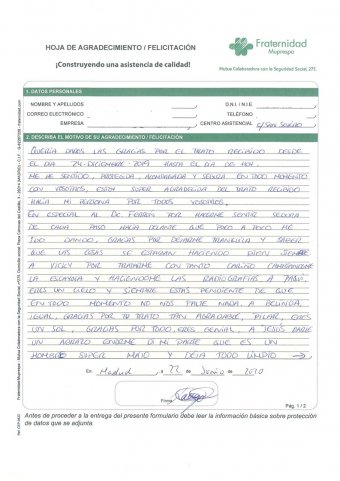 HOJA DE AGRADECIMIENTO / FELICITACIÓN
¡Construyendo una asistencia de calidad!
Fraternidad
Muprespa
Mutua Colaboradora con la Seguridad Social, 275
1. DATOS PERSONALES
NOMBRE Y APELLIDOS
D.N.I. / N.I.E.
CORREO ELECTRÓNICO
TELÉFONO
EMPRESA
CENTRO ASISTENCIAL
2. DESCRIBA EL MOTIVO DE SU AGRADECIMIENTO / FELICITACIÓN
QUERÍA DAROS LAS GRACIAS POR EL TRATO RECIBIDO DESDE
EL DIA 24-DICIEMBRE-2019 HASTA EL DIA DE HOY.
ME HE SENTIDO, PROTEGIDA, ACOMPAÑADA Y SEGURA. EN TODO MOMENTO
CON VOSOTROS, ESTOY SUPER AGRADECIDA DEL TRATO RECIBIDO
HACIA MI PERSONA POR TODOS VOSOTROS.
EN ESPECIAL AL DR. FERRÓN POR HACERME SENTIR SEGURA
DE CADA PASO HACIA DELANTE QUE POCO A POCO ME
IDO DANDO, GRACIAS POR DEJARME TRANQUILA Y SABER
QUE LAS COSAS SE ESTABAN HACIENDO BIEN
A VICKY POR TRATARME CON TANTO CARIÑO
LA ESCAYOLA Y HACIENDOME LAS RADIOGRAFÍAS A
ERES UN CIELO Y ESTAS PENDIENTE DE QUE
EN TODO MOMENTO NO NOS FALTE NADA, A BELINDA,
IGUAL, GRACIAS POR TU TRATO TAN AGRADABLE, PILAR, ERES
UN SOL, GRACIAS POR TODO, ERES GENIAL, A JESÚS DARLE
UN ABRAZO ENORME DE MI PARTE QUE ES UN
HOMBRE SUPER MAJO Y DEJA TODO LIMPITO
En, Madrid, a 22 de Junio de 2020
Firma
Pág. 1 / 2
Antes de proceder a la entrega del presente formulario debe leer la información básica sobre protección
de datos que se adjunta.